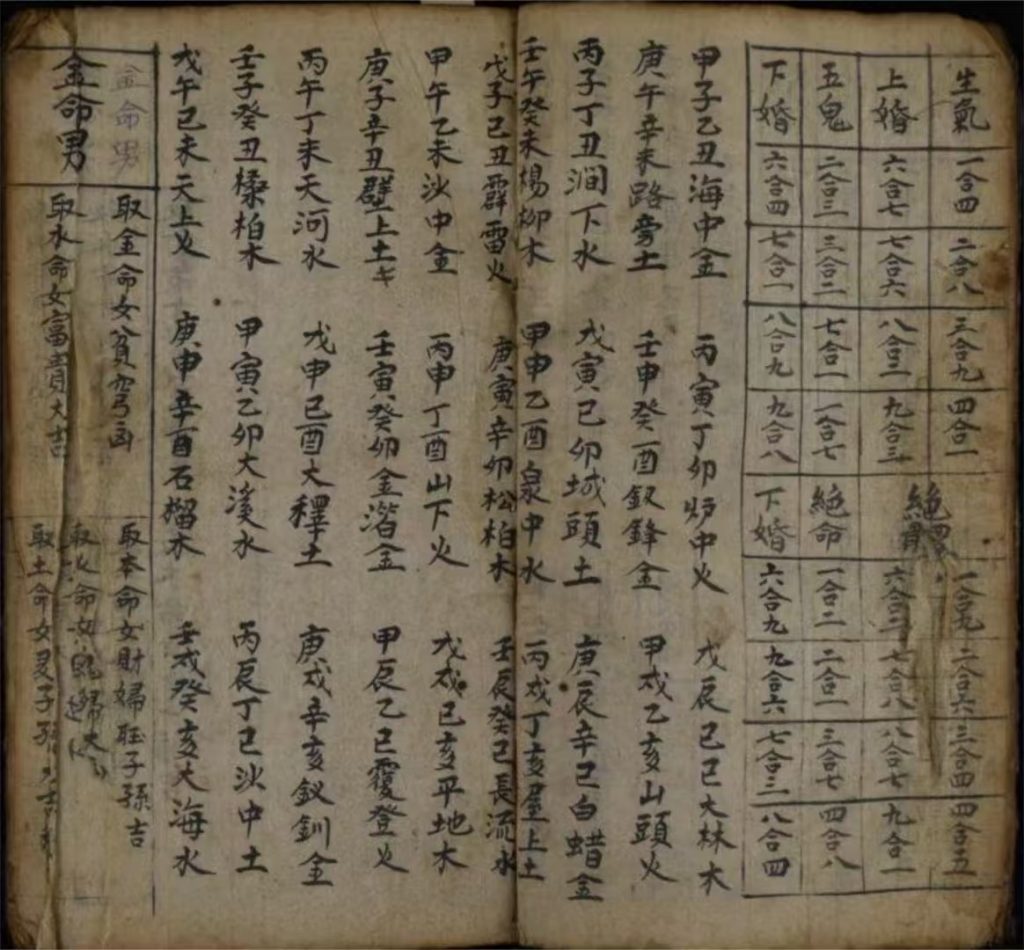 生氣 一合四 二合八 三合九 四合一 絶體 一合九 二合六 三合四 四合五
上婚 六合七 七合六 八合二 九合三 六合二 七合八 八合七 九合一
五鬼 二合三 三合二 七合一 一合七 絶命 一合二 二合一 三合七 四合八
下婚 六合四 七合一 八合九 九合八 下婚 六合九 九合六 七合三 八合四
甲子乙丑海中金 丙寅丁卯炉中火 戊辰己巳大林木
庚午辛未路旁土 壬申癸酉釵鋒金 甲戌乙亥山頭火
丙子丁丑澗下水 戊寅己卯城頭土 庚辰辛巳白蜡金
壬午癸未楊柳木 甲申乙酉泉中水 丙戌丁亥屋上土
戊子己丑霹雷火 庚寅辛卯松柏木 壬辰癸巳長流水
甲午乙未沙中金 丙申丁酉山下火 戊戌己亥平地木
庚子辛丑壁上土 壬寅癸卯金湝金 甲辰乙巳覆登火
丙午丁未天河水 戊申己酉大釋土 庚戌辛亥釵釧金
壬子癸丑桑柏木 甲寅乙卯大溪水 丙辰丁巳沙中土
戊午己未天上火 庚申辛酉石榴木 壬戌癸亥大海水
金命男
金命男
取金命女貧窮凶 取本命女財婦旺子孫吉
取水命女富貴大吉 取火命女
取土命女